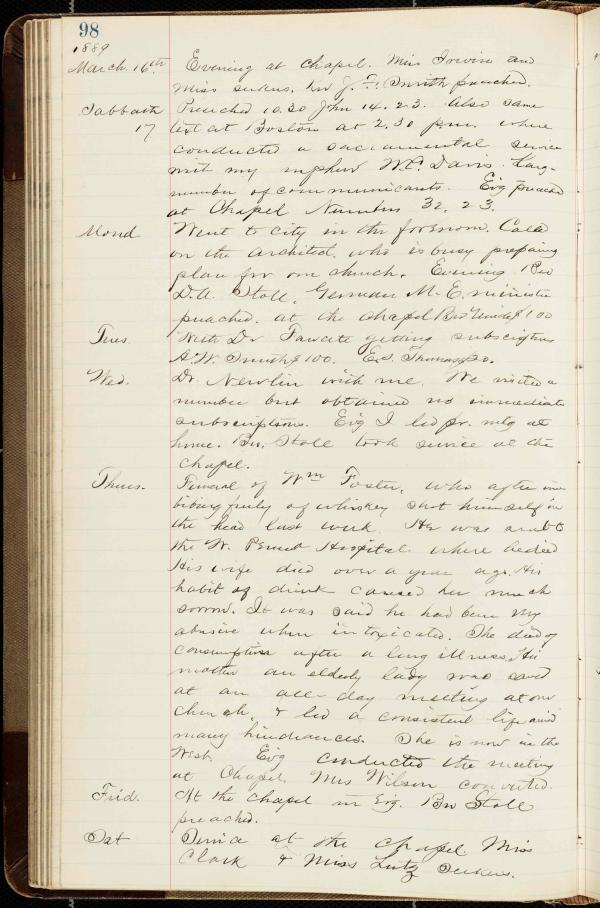 98
1889
March. 16th Evening at Chapel. Miss Irvine and
Miss seekers, Rev J. F. Smith preached.
Sabbath Preached 10.30 John 14. 23. Also same
17 text at Boston at 2.30 p.m. where
conducted a sacramental service
with my nephew W.P. Davis. Large
number of communicants. Evg preached
at Chapel Numbers 32. 23.
Mond Went to city in the forenoon. Called
on the architect, who is busy preparing
plan for our church. Evening Rev
D.A. Stoll, German M.E. minister
preached. at the Chapel $100
Tues. With Dr Fawcett getting subscriptions
A.W. Smith $100. E.S. Thomas 20.
Wed. Dr. Newlin with me. We visited a
number but obtained no immediate
subscriptions. Evg I led pr. mtg at
home. Bro. Stoll took service at the
Chapel.
Thurs. Funeral of Wm Foster, who after im
bibing freely of whiskey shot himself in
the head last week. He was sent to
the W. Penna Hospital where he died
His wife died over a year ago. His
habit of drink caused her much
sorrow. It was said he had been very
abusive when intoxicated. She died of
consumption after a long illness. His
mother an elderly lady was saved
at an all-day meeting at our
church, & led a consistent life amid
many hindrances. She is now in the
West. Evg conducted the meeting
at Chapel. Mrs Wilson converted.
Frid. At the Chapel in Evg. Bro Stoll
preached.
Sat Service at the chapel. Miss
Clark & Miss Lutz seekers.